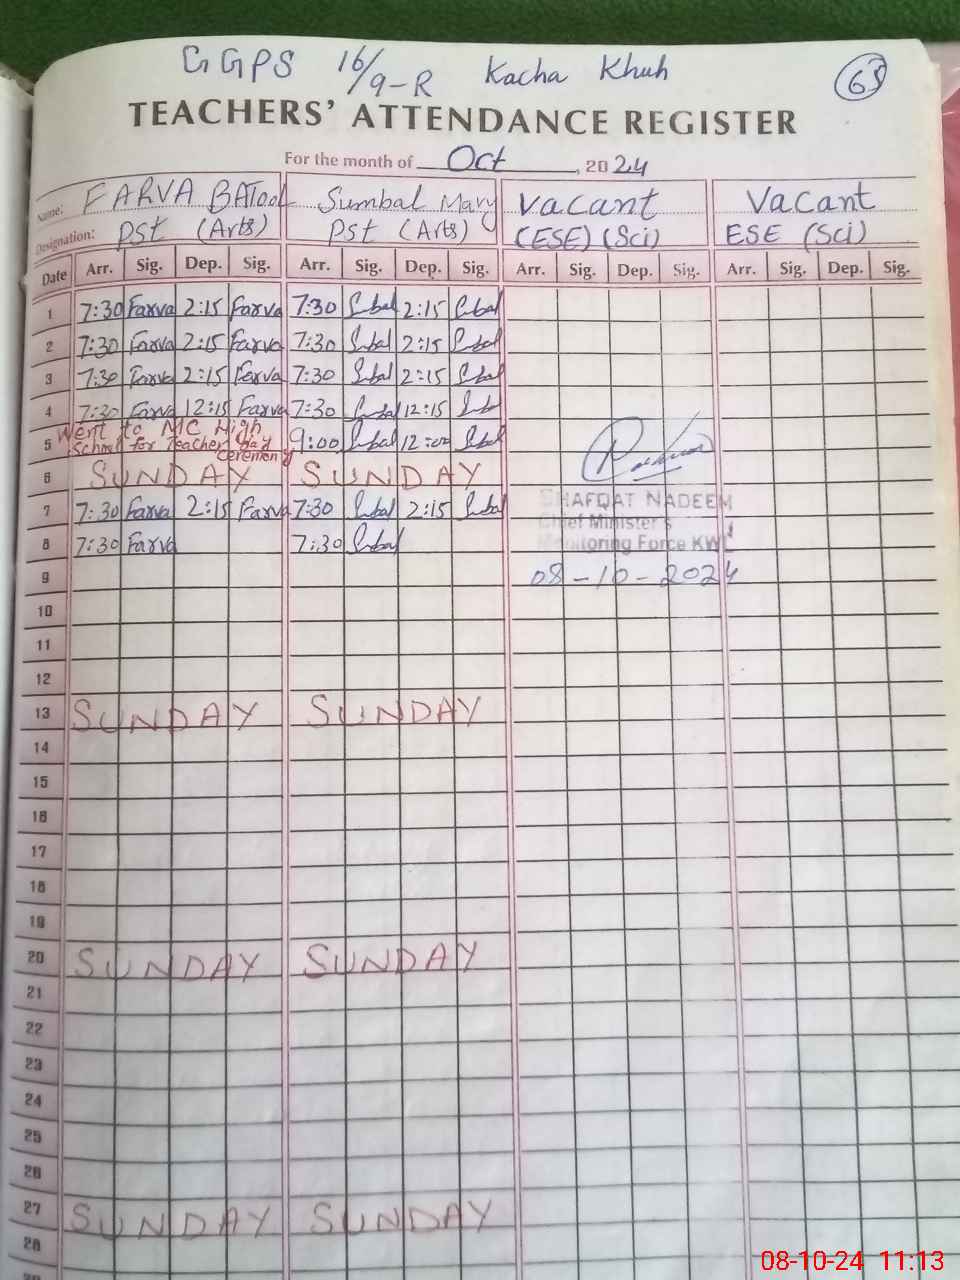 GGPS 16/9-R Kacha Khuh 65
TEACHERS' ATTENDANCE REGISTER
For the month of Oct, 2024
Name: FARVA BATool Sumbal Mary Vacant Vacant
Designation: PST (Arts) PST (Arts) (ESE) (Sci) ESE (Sci)
Date Arr. Sig. Dep. Sig. Arr. Sig. Dep. Sig. Arr. Sig. Dep. Sig. Arr. Sig. Dep. Sig.
1 7:30 Farva 2:15 Farva 7:30 2:15
2 7:30 Farva 2:15 Farva 7:30 2:15
3 7:30 Farva 2:15 Farva 7:30 2:15
4 7:30 Farva 12:15 Farva 7:30 12:15
5 Went to MC High School for Teacher Day Ceremony 9:00 12:00
6 SUNDAY SUNDAY
7 7:30 Farva 2:15 Farva 7:30 2:15
SHAFQAT NADEEM
Chief Minister's
8 7:30 Farva 7:30
Monitoring Force KWL
9 08-10-2024
10
11
12
13 SUNDAY SUNDAY
14
15
16
17
18
19
20 SUNDAY SUNDAY
21
22
23
24
25
26
27 SUNDAY SUNDAY
28
08-10-24 11:13